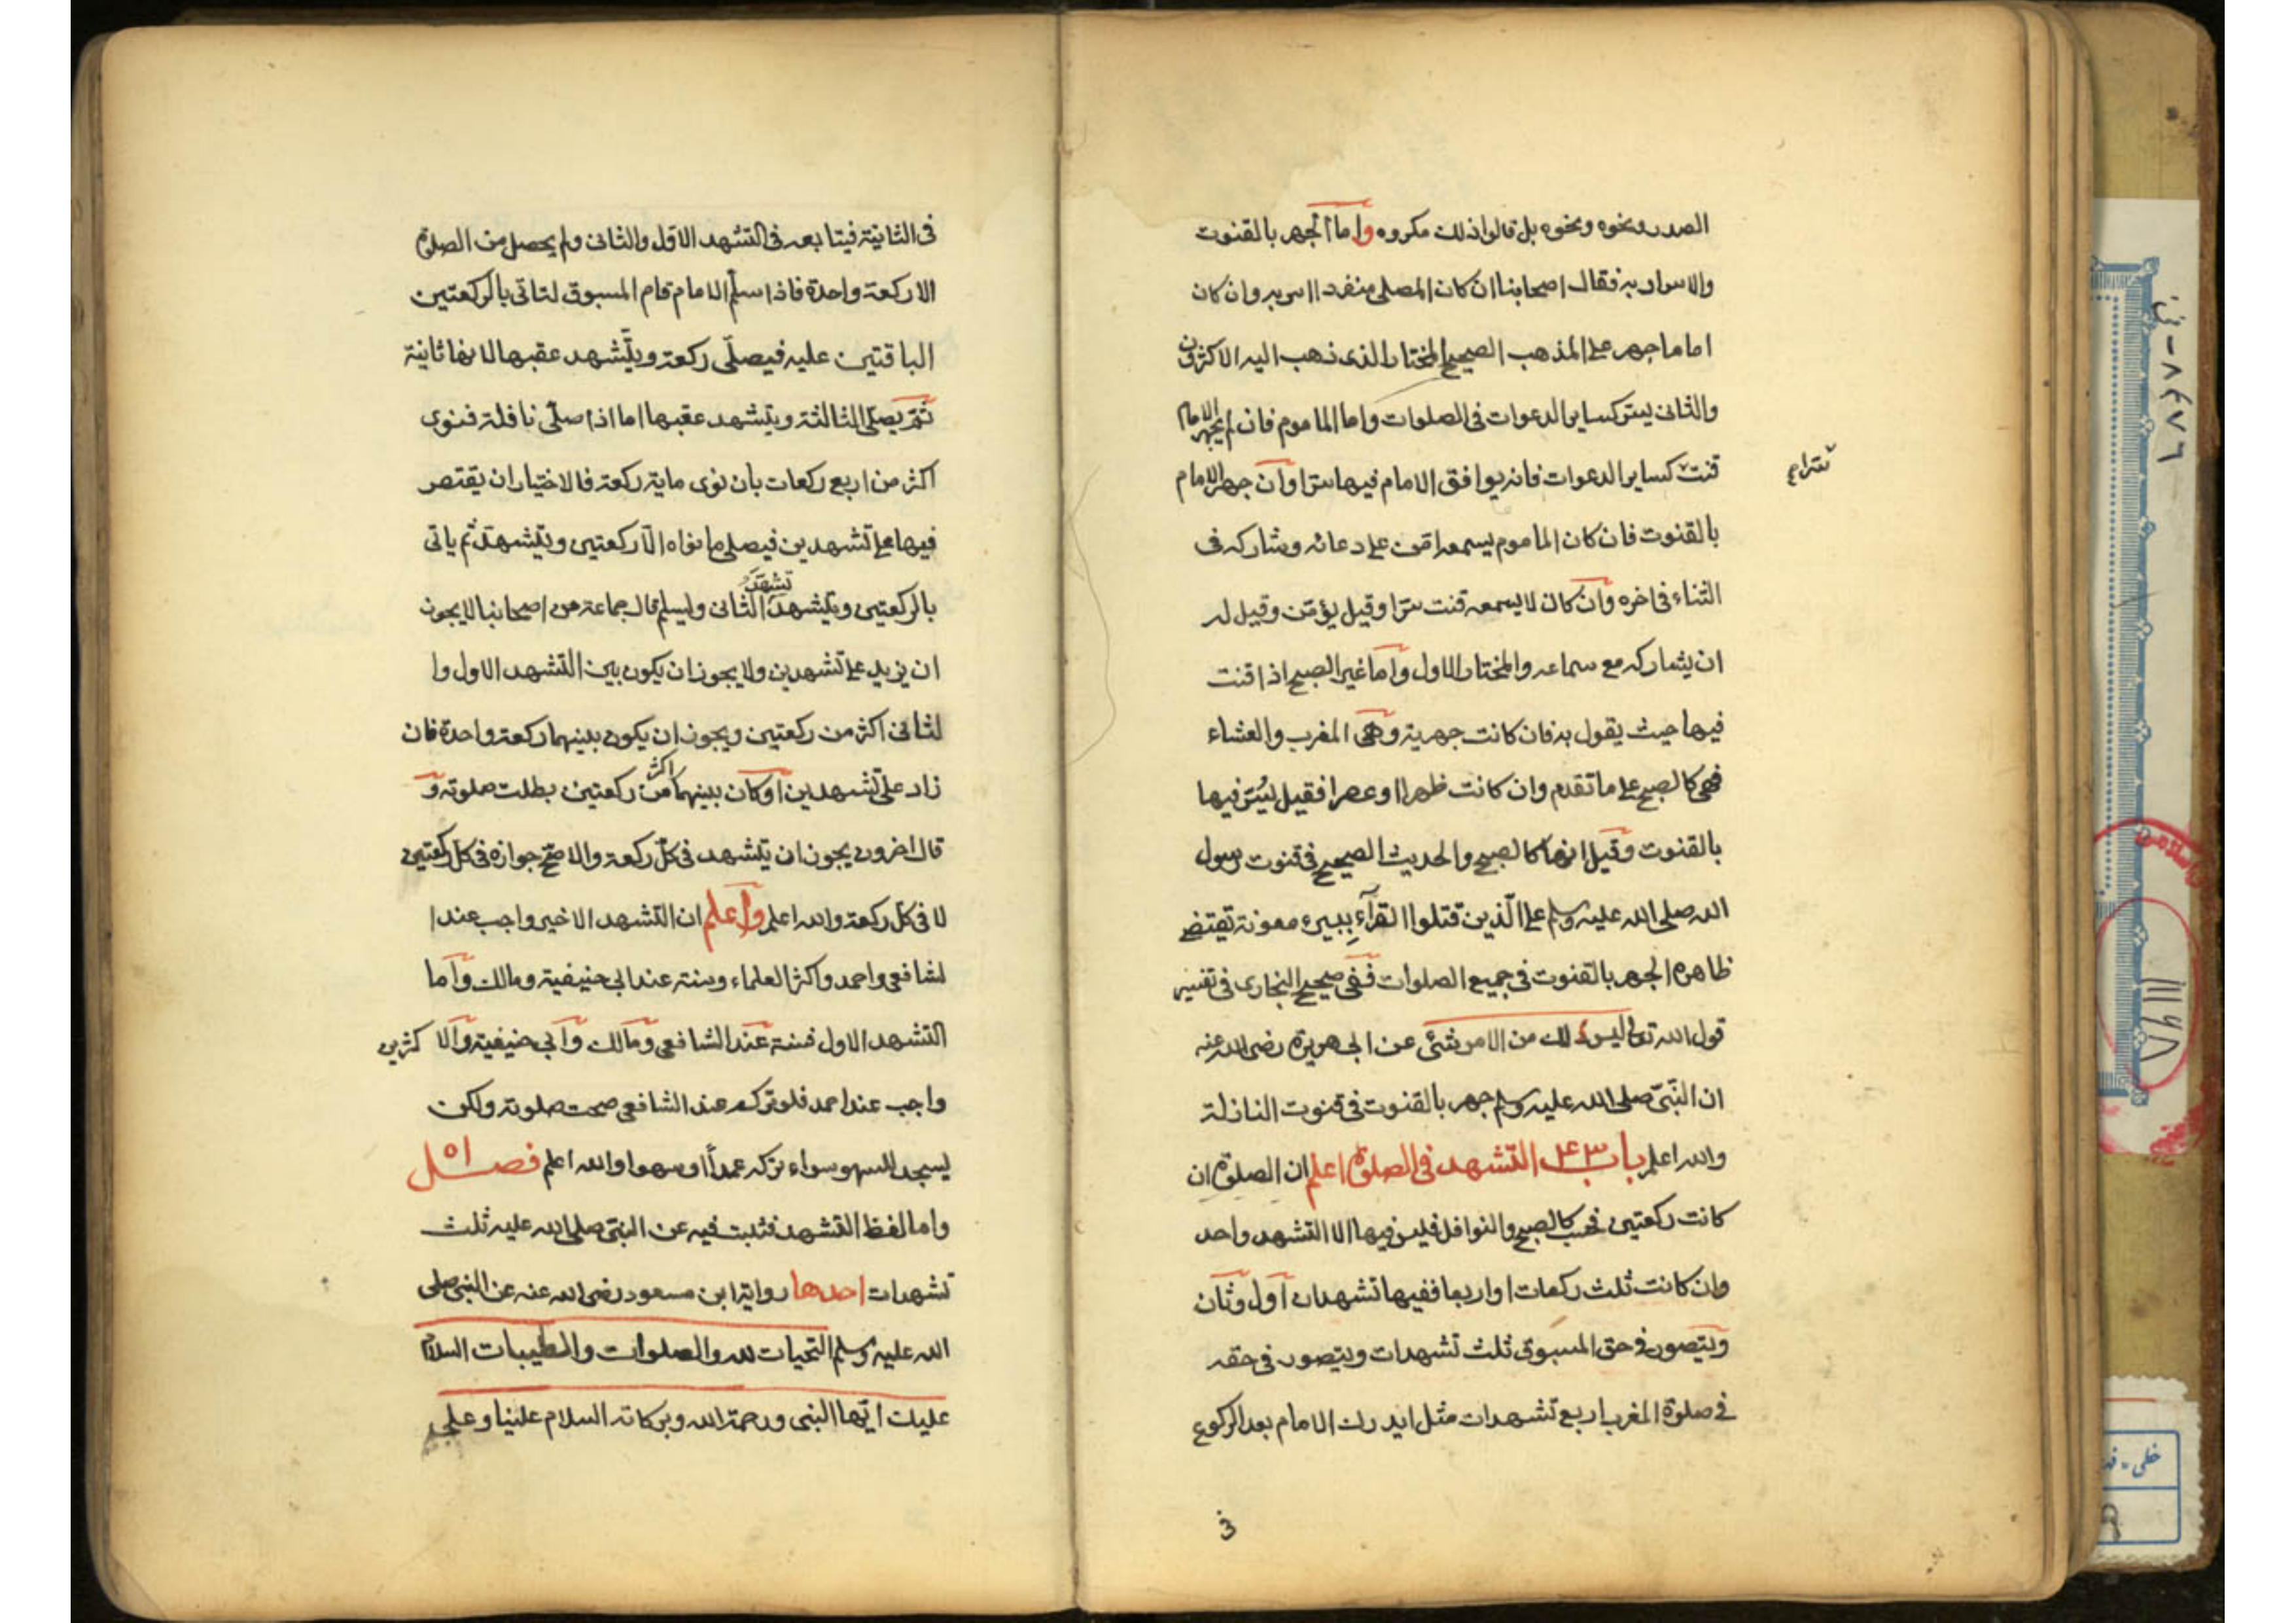 الصدر ونحوه ونحوه بل قالوا ذلك مكروه واما الجهر بالقنوت
والاسرار به فقال اصحابنا ان كان المصلى منفردا اسر به وان كان
اماما جهر على المذهب الصحيح المختار الذى ذهب اليه الاكثرون
والثانى يسر كساير الدعوات فى الصلوات واما الماموم فان لم يجهر الامام
قنت سرا كساير الدعوات فانه يوافق الامام فيها سرا وان جهر الامام
بالقنوت فان كان الماموم يسمعه امّن على دعائه وشاركه فى
الثناء فى اخره وان كان لا يسمعه قنت سرا وقيل يؤمّن وقيل له
ان يشاركه مع سماعه والمختار الاول واما غير الصبح اذا قنت
فيها حيث يقول به فان كانت جهرية وهى المغرب والعشاء
فهى كالصبح على ما تقدم وان كانت ظهرا او عصرا فقيل يسر فيها
بالقنوت وقيل انها كالصبح والحديث الصحيح فى قنوت رسول
الله صلى الله عليه وسلم على الّذين قتلوا القرآء ببير معونة تقتضى
ظاهره الجهر بالقنوت فى جميع الصلوات ففى صحيح البخارى فى تفسير
قول الله تعالى ليس لك من الامر شئى عن ابى هريرة رضى الله عنه
ان النّبىّ صلى الله عليه وسلم جهر بالقنوت فى قنوت النازلة
والله اعلم باب ٤٣ التشهد فى الصلوة اعلم ان الصلوة ان
كانت ركعتين فحسب كالصبح والنوافل فليس فيها الا التشهد واحد
وان كانت ثلث ركعات او اربعا ففيها تشهدان اول وثان
ويتصور فى حق المسبوق ثلث تشهدات ويتصور فى حقه
فى صلوة المغرب اربع تشهدات مثل ان يدرك الامام بعد الركوع
فى
فى الثانية فيتابعه فى التشهد الاول والثانى ولم يحصل من الصلوة
الا ركعة واحدة فاذا سلّم الامام قام المسبوق لتاتى بالركعتين
الباقتين عليه فيصلّى ركعة ويتّشهد عقبها لانها ثانية
ثمّ يصلى الثالثة ويتشهد عقبها اما اذا صلّى نافلة فنوى
اكثر من اربع ركعات بان نوى ماية ركعة فالاختيار ان يقتصر
فيها على تشهدين فيصلى ما نواه الّا ركعتين ويتشهد ثم ياتى
بالركعتين ويتشهد تشهد الثانى وليسلم قال جماعة من اصحابنا لا يجوز
ان يزيد على تشهدين ولا يجوز ان يكون بين التشهد الاول وا
لثانى اكثر من ركعتين ويجوز ان يكون بينهما ركعة واحدة فان
زاد على تشهدين او كان بينهما اكثر من ركعتين بطلت صلوته و
قال اخرون يجوز ان يتشهد فى كلّ ركعة والاصح جوازه فى كل ركعتين
لا فى كل ركعة والله اعلم واعلم ان التشهد الاخير واجب عند ا
لشافعى واحمد واكثر العلماء وسنة عند ابى حنيفية ومالك واما
التشهد الاول فسنة عند الشافعى ومالك وابى حنيفية والا كثرين
واجب عند احمد فلو تركه عند الشافعى صحت صلوته ولكن
يسجد للسهو سواء تركه عمداً او سهوا والله اعلم فصل ٥١
واما لفظ التشهد فثبت فيه عن النبى صلى الله عليه ثلث
تشهدات احدها رواية ابن مسعود رضى الله عنه عن النبى صلى
الله عليه وسلم التحيات لله والصلوات والطيبات السلام
عليك ايّها النبى ورحمة الله وبركاته السلام علينا وعلى